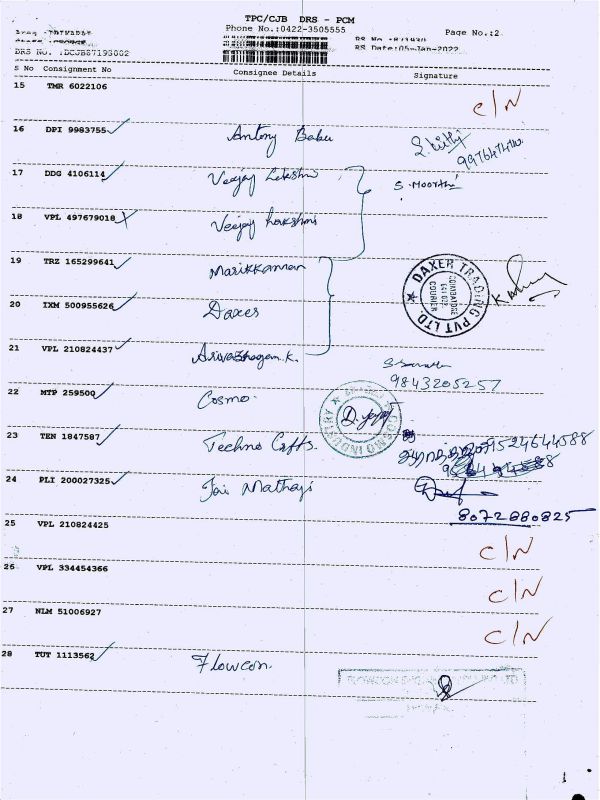 TPC/CJB DRS - PCM
Phone No.:0422-3505555
Page No.:2
RS No :871930
DRS No. :DCJB87193002
RS Date:05-Jan-2022
S No Consignment No Consignee Details Signature
15 TMR 6022106 C/N
16 DPI 9983755 Antony Babu
17 DDG 4106114 Veejay Lakshmi S. Moorthi
18 VPL 497679018 Veejay Lakshmi
19 TRZ 165299641 Marikkannan
DAXER TRADING PVT LTD.
COIMBATORE
641 022
COURIER
20 IXM 500955626 Daxer
21 VPL 210824437 Arivazhagan.K.
9843205257
22 MTP 259500 Cosmo.
COSMO INDUSTRY
23 TEN 1847587 Techno Crafts. 9524644588
24 PLI 200027325 Jai Mathaji
8072880825
25 VPL 210824425 C/N
26 VPL 334454366 C/N
27 NLM 51006927 C/N
28 TUT 1113562 Flowcon.